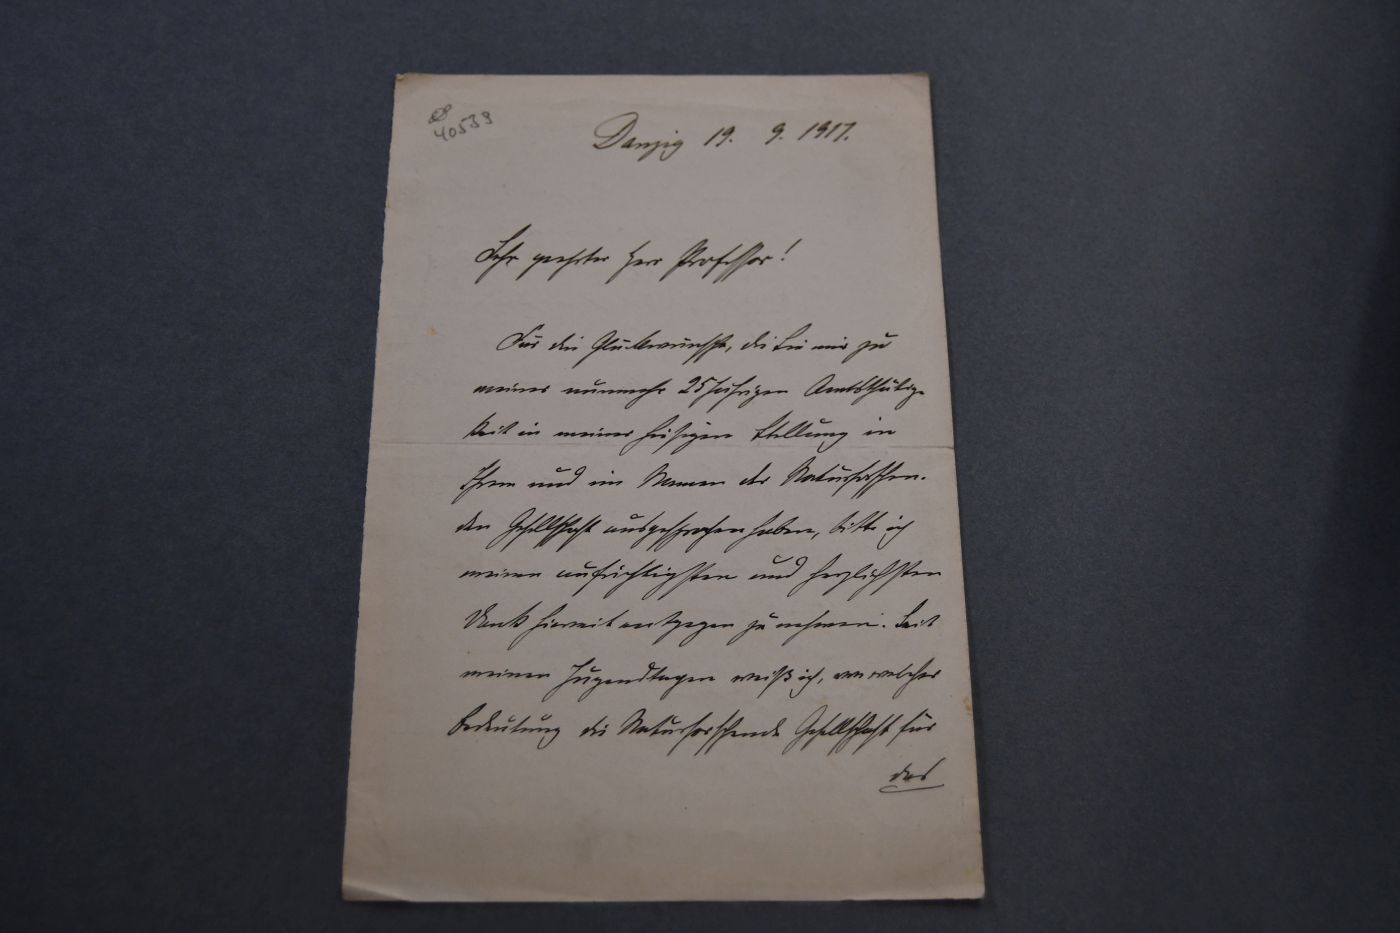 40539
Danzig 19. 9. 1917.
Sehr geehrter Herr Professor!
Für die Glückwünsche, die Sie mir zu
meiner nunmehr 25jährigen Amtsthätig-
keit in meiner hiesigen Stellung in
Ihrem und im Namen der Naturforschen-
den Gesellschaft ausgesprochen haben, bitte ich
meinen aufrichtigsten und herzlichsten
Dank hiermit entgegen zu nehmen. Seit
meinen Jugendtagen weiß ich, von welcher
Bedeutung die Naturforschende Gesellschaft für
das